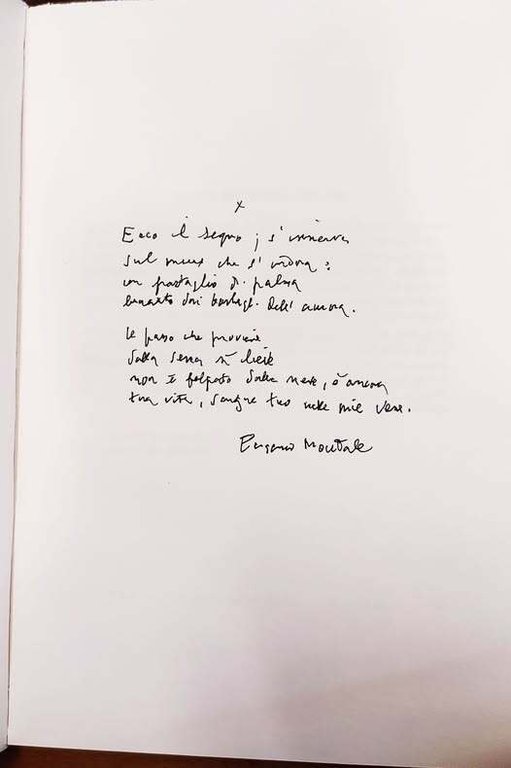 x
Ecco il segno; s'innerva
sul muro che s'indora:
un frastaglio di palma
bruciato dai barbagli dell'aurora.
Il passo che proviene
dalla serra sì lieve
non è felpato dalla neve, è ancora
tua vita, sangue tuo nelle mie vene.
Eugenio Montale